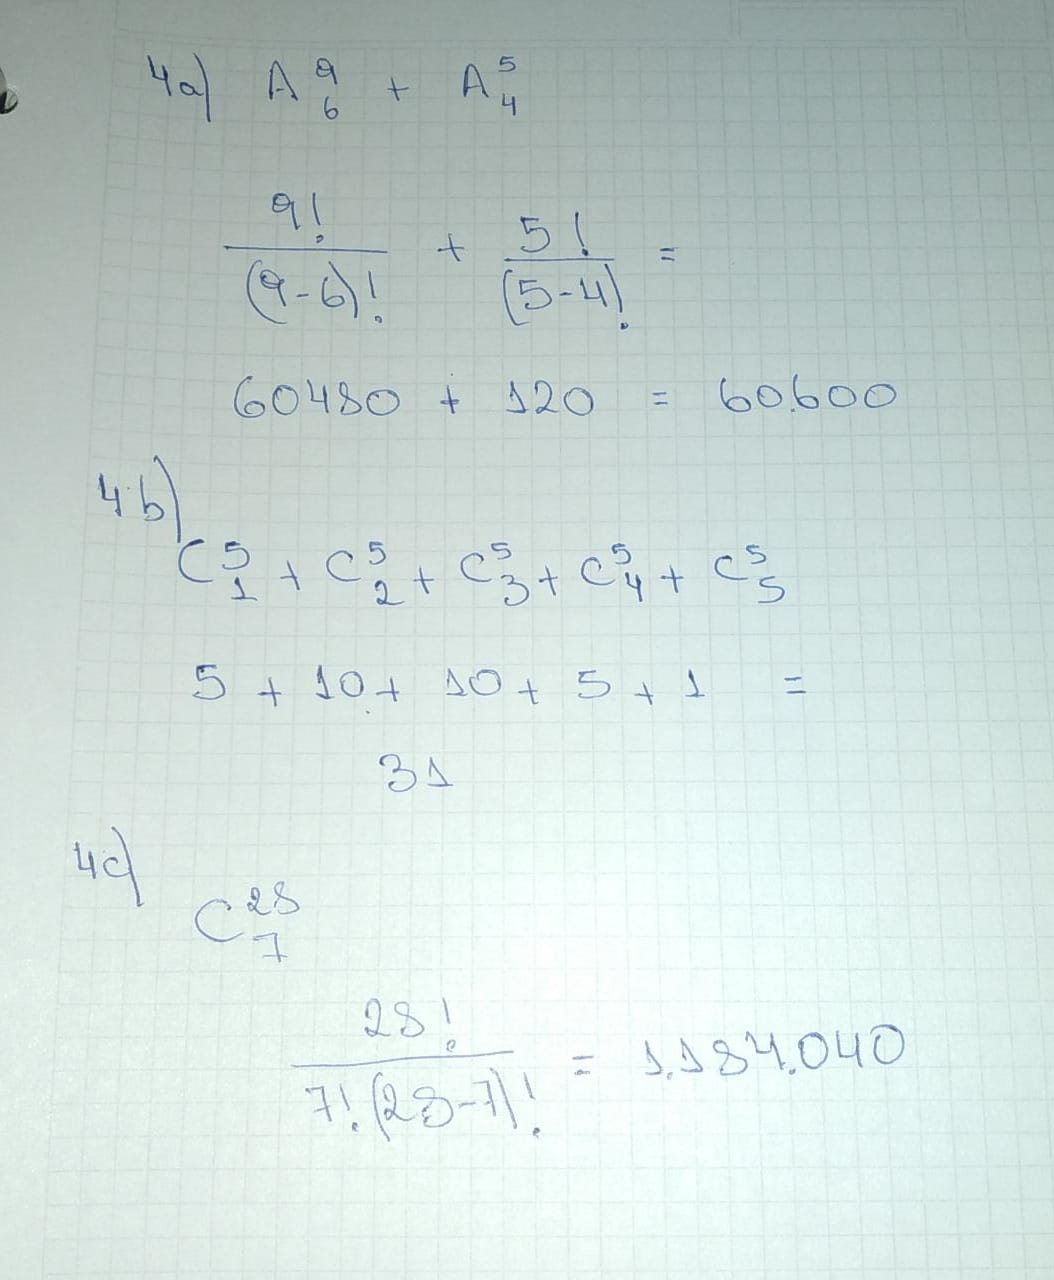 4a) A⁹₆ + A⁵₄
9! / (9-6)! + 5! / (5-4)! =
60480 + 120 = 60.600
4b)
C⁵₁ + C⁵₂ + C⁵₃ + C⁵₄ + C⁵₅
5 + 10 + 10 + 5 + 1 =
31
4c)
C²⁸₇
28! / 7!(28-7)! = 1.184.040